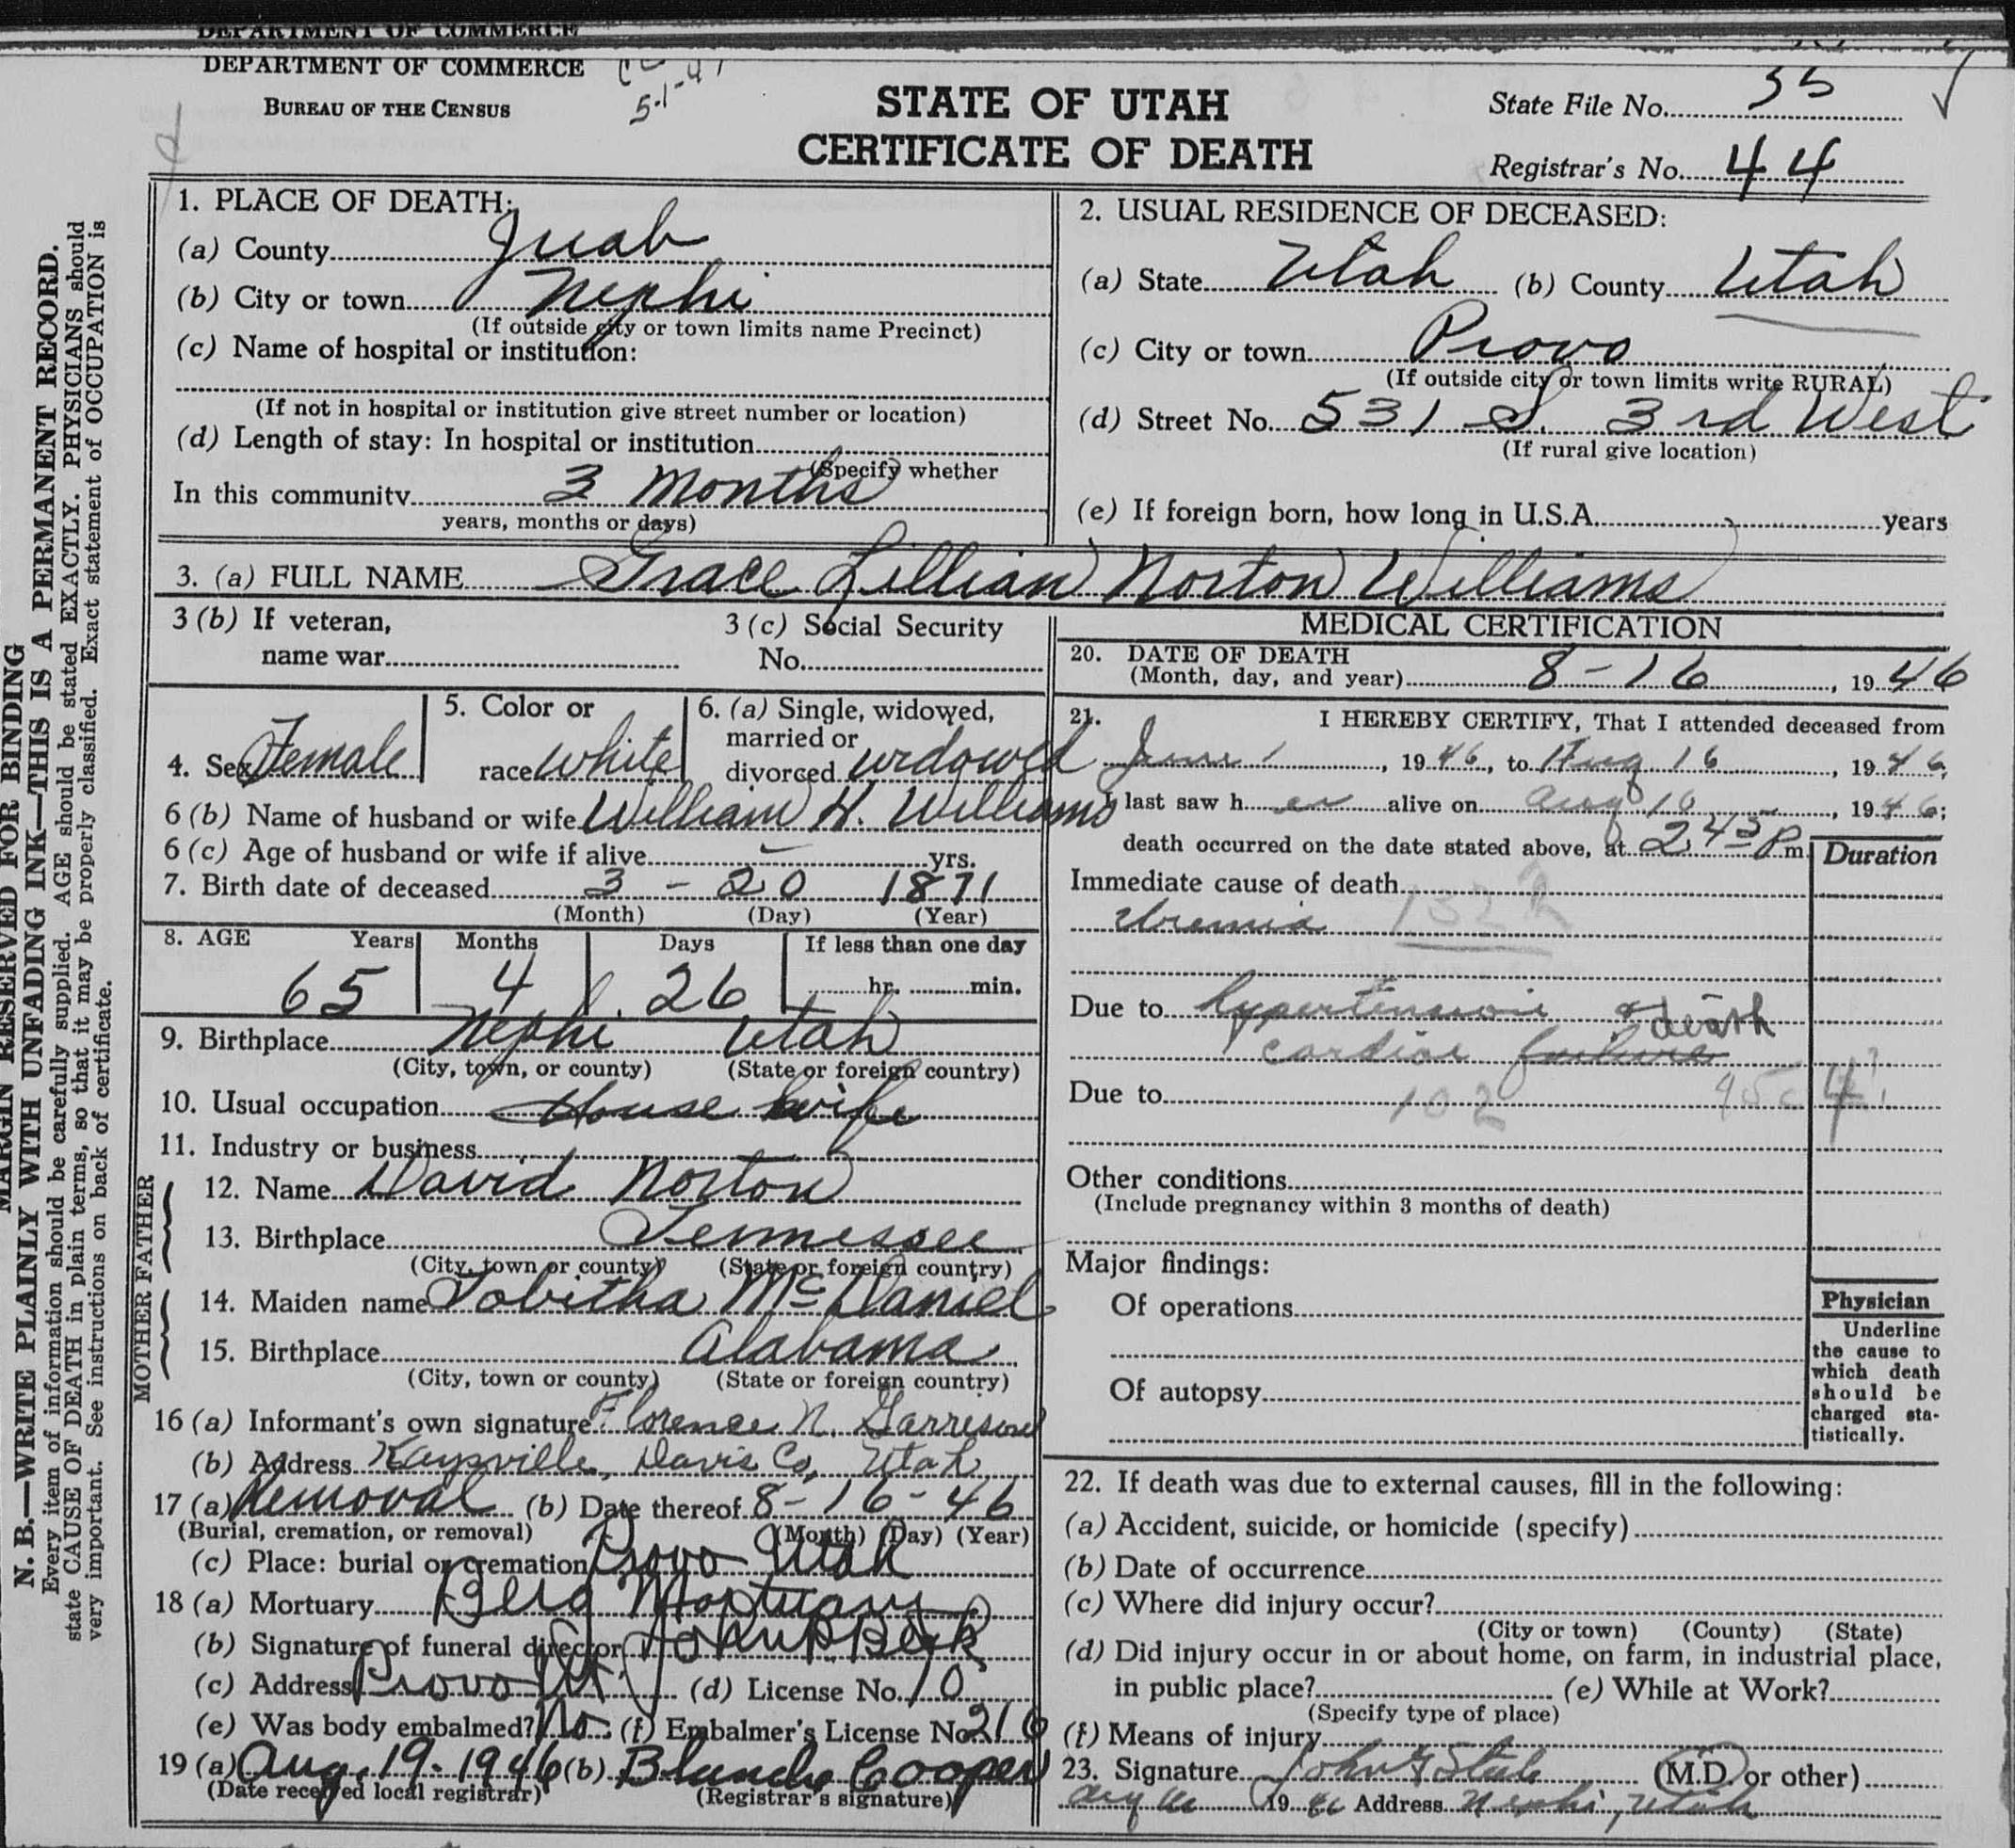 DEPARTMENT OF COMMERCE
DEPARTMENT OF COMMERCE
BUREAU OF THE CENSUS
5-1-47
STATE OF UTAH
CERTIFICATE OF DEATH
State File No. 35
Registrar's No. 44
MARGIN RESERVED FOR BINDING
N. B.—WRITE PLAINLY WITH UNFADING INK—THIS IS A PERMANENT RECORD.
Every item of information should be carefully supplied. AGE should be stated EXACTLY. PHYSICIANS should
state CAUSE OF DEATH in plain terms, so that it may be properly classified. Exact statement of OCCUPATION is
very important. See instructions on back of certificate.
1. PLACE OF DEATH:
(a) County Juab
(b) City or town Nephi
(If outside city or town limits name Precinct)
(c) Name of hospital or institution:
(If not in hospital or institution give street number or location)
(d) Length of stay: In hospital or institution
(Specify whether
In this community 3 Months
years, months or days)
2. USUAL RESIDENCE OF DECEASED:
(a) State Utah (b) County Utah
(c) City or town Provo
(If outside city or town limits write RURAL)
(d) Street No. 531 S. 3rd West
(If rural give location)
(e) If foreign born, how long in U.S.A. years
3. (a) FULL NAME Grace Lillian Norton Williams
3 (b) If veteran,
name war
3 (c) Social Security
No.
4. Sex Female
5. Color or
race White
6. (a) Single, widowed,
married or
divorced widowed
6 (b) Name of husband or wife William H. Williams
6 (c) Age of husband or wife if alive - yrs.
7. Birth date of deceased 3 - 20 1871
(Month) (Day) (Year)
8. AGE Years Months Days If less than one day
65 4 26 hr. min.
9. Birthplace Nephi Utah
(City, town, or county) (State or foreign country)
10. Usual occupation House wife
11. Industry or business
FATHER
12. Name David Norton
13. Birthplace Tennessee
(City, town or county) (State or foreign country)
MOTHER
14. Maiden name Tobitha McDaniel
15. Birthplace Alabama
(City, town or county) (State or foreign country)
16 (a) Informant's own signature Florence N. Garrison
(b) Address Kaysville, Davis Co, Utah
17 (a) Removal (b) Date thereof 8-16-46
(Burial, cremation, or removal) (Month) (Day) (Year)
(c) Place: burial or cremation Provo Utah
18 (a) Mortuary Berg Mortuary
(b) Signature of funeral director
(c) Address Provo Ut. (d) License No. 10
(e) Was body embalmed? No (f) Embalmer's License No. 216
19 (a) Aug. 19-1946 (b) Blanche Cooper
(Date received local registrar) (Registrar's signature)
MEDICAL CERTIFICATION
20. DATE OF DEATH
(Month, day, and year) 8-16, 1946
21. I HEREBY CERTIFY, That I attended deceased from
June 1, 1946, to Aug 16, 1946,
I last saw her alive on Aug 16, 1946;
death occurred on the date stated above, at 2.45 P m.
Duration
Immediate cause of death
Uremia 132
Due to hypertension & death
cardiac failure
Due to 102 95c
Other conditions
(Include pregnancy within 3 months of death)
Major findings:
Of operations
Of autopsy
Physician
Underline
the cause to
which death
should be
charged sta-
tistically.
22. If death was due to external causes, fill in the following:
(a) Accident, suicide, or homicide (specify)
(b) Date of occurrence
(c) Where did injury occur?
(City or town) (County) (State)
(d) Did injury occur in or about home, on farm, in industrial place,
in public place? (e) While at Work?
(Specify type of place)
(f) Means of injury
23. Signature John (M.D. or other)
Aug 1946 Address Nephi, Utah